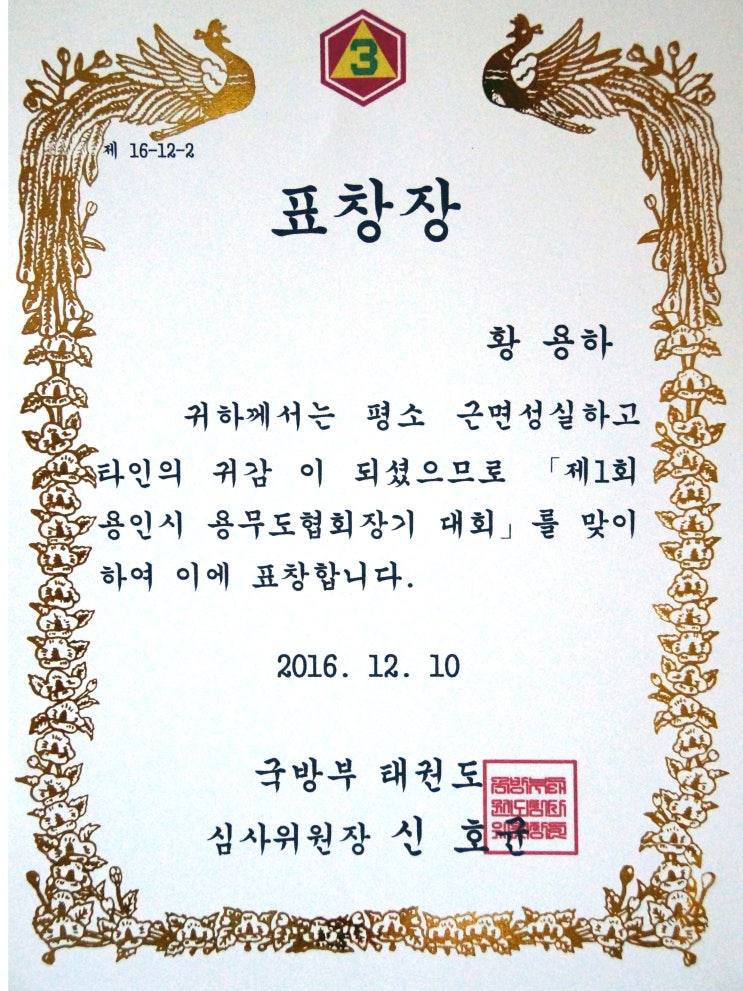 3
제 16-12-2
표창장
황 용하
귀하께서는 평소 근면성실하고
타인의 귀감 이 되셨으므로 「제1회
용인시 용무도협회장기 대회」를 맞이
하여 이에 표창합니다.
2016. 12. 10
국방부 태권도
심사위원장 신 호균